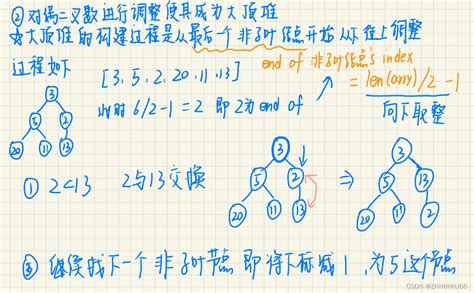 ② 对端二叉数进行调整使其成为大顶堆
☆大顶堆的构建过程是从最后一个非子叶结点开始从下往上调整
过程如下 [3, 5, 2, 20, 11, 13] end of 非子叶结点's index
此时 6/2-1=2 即2为end of = len(array)/2 - 1
向下取整
3
5 2
20 11 13
① 2<13 2与13交换
3
5 2
20 11 13
⇒
3
5 13
20 11 2
③ 继续找下一个非子叶节点 即将下标减1,为5这个节点
CSDN @ZHHHHHJ66